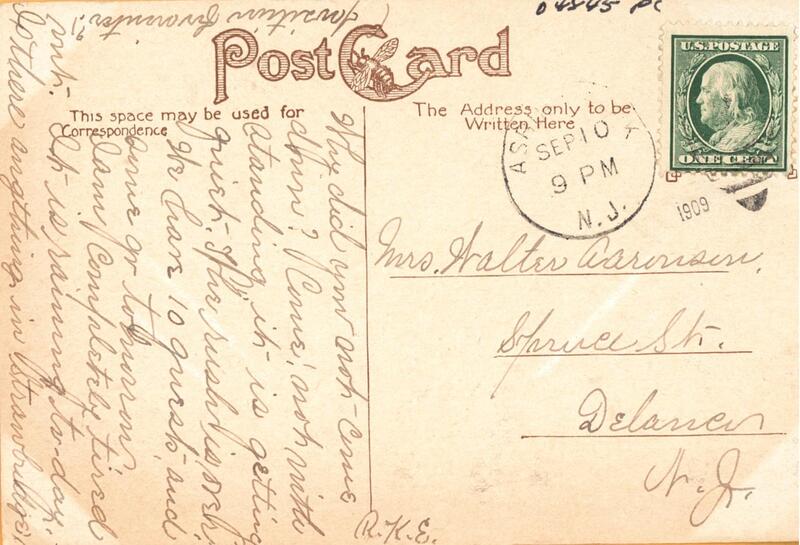 04845 PC
Post Card
This space may be used for
Correspondence
The Address only to be
Written Here
U.S. POSTAGE
ONE CENT
SEP 10
9 PM
N.J.
1909
Mrs. Walter Aaronson.
Spruce St.
Delanco
N.J.
Why did you not come
down? Come, not with
standing it is getting
quiet. The rush is over.
We have 10 guests and
some go tomorrow.
I am completely tired
out.
It is raining to-day.
Is there anything in Strawbridge's
R.K.E.